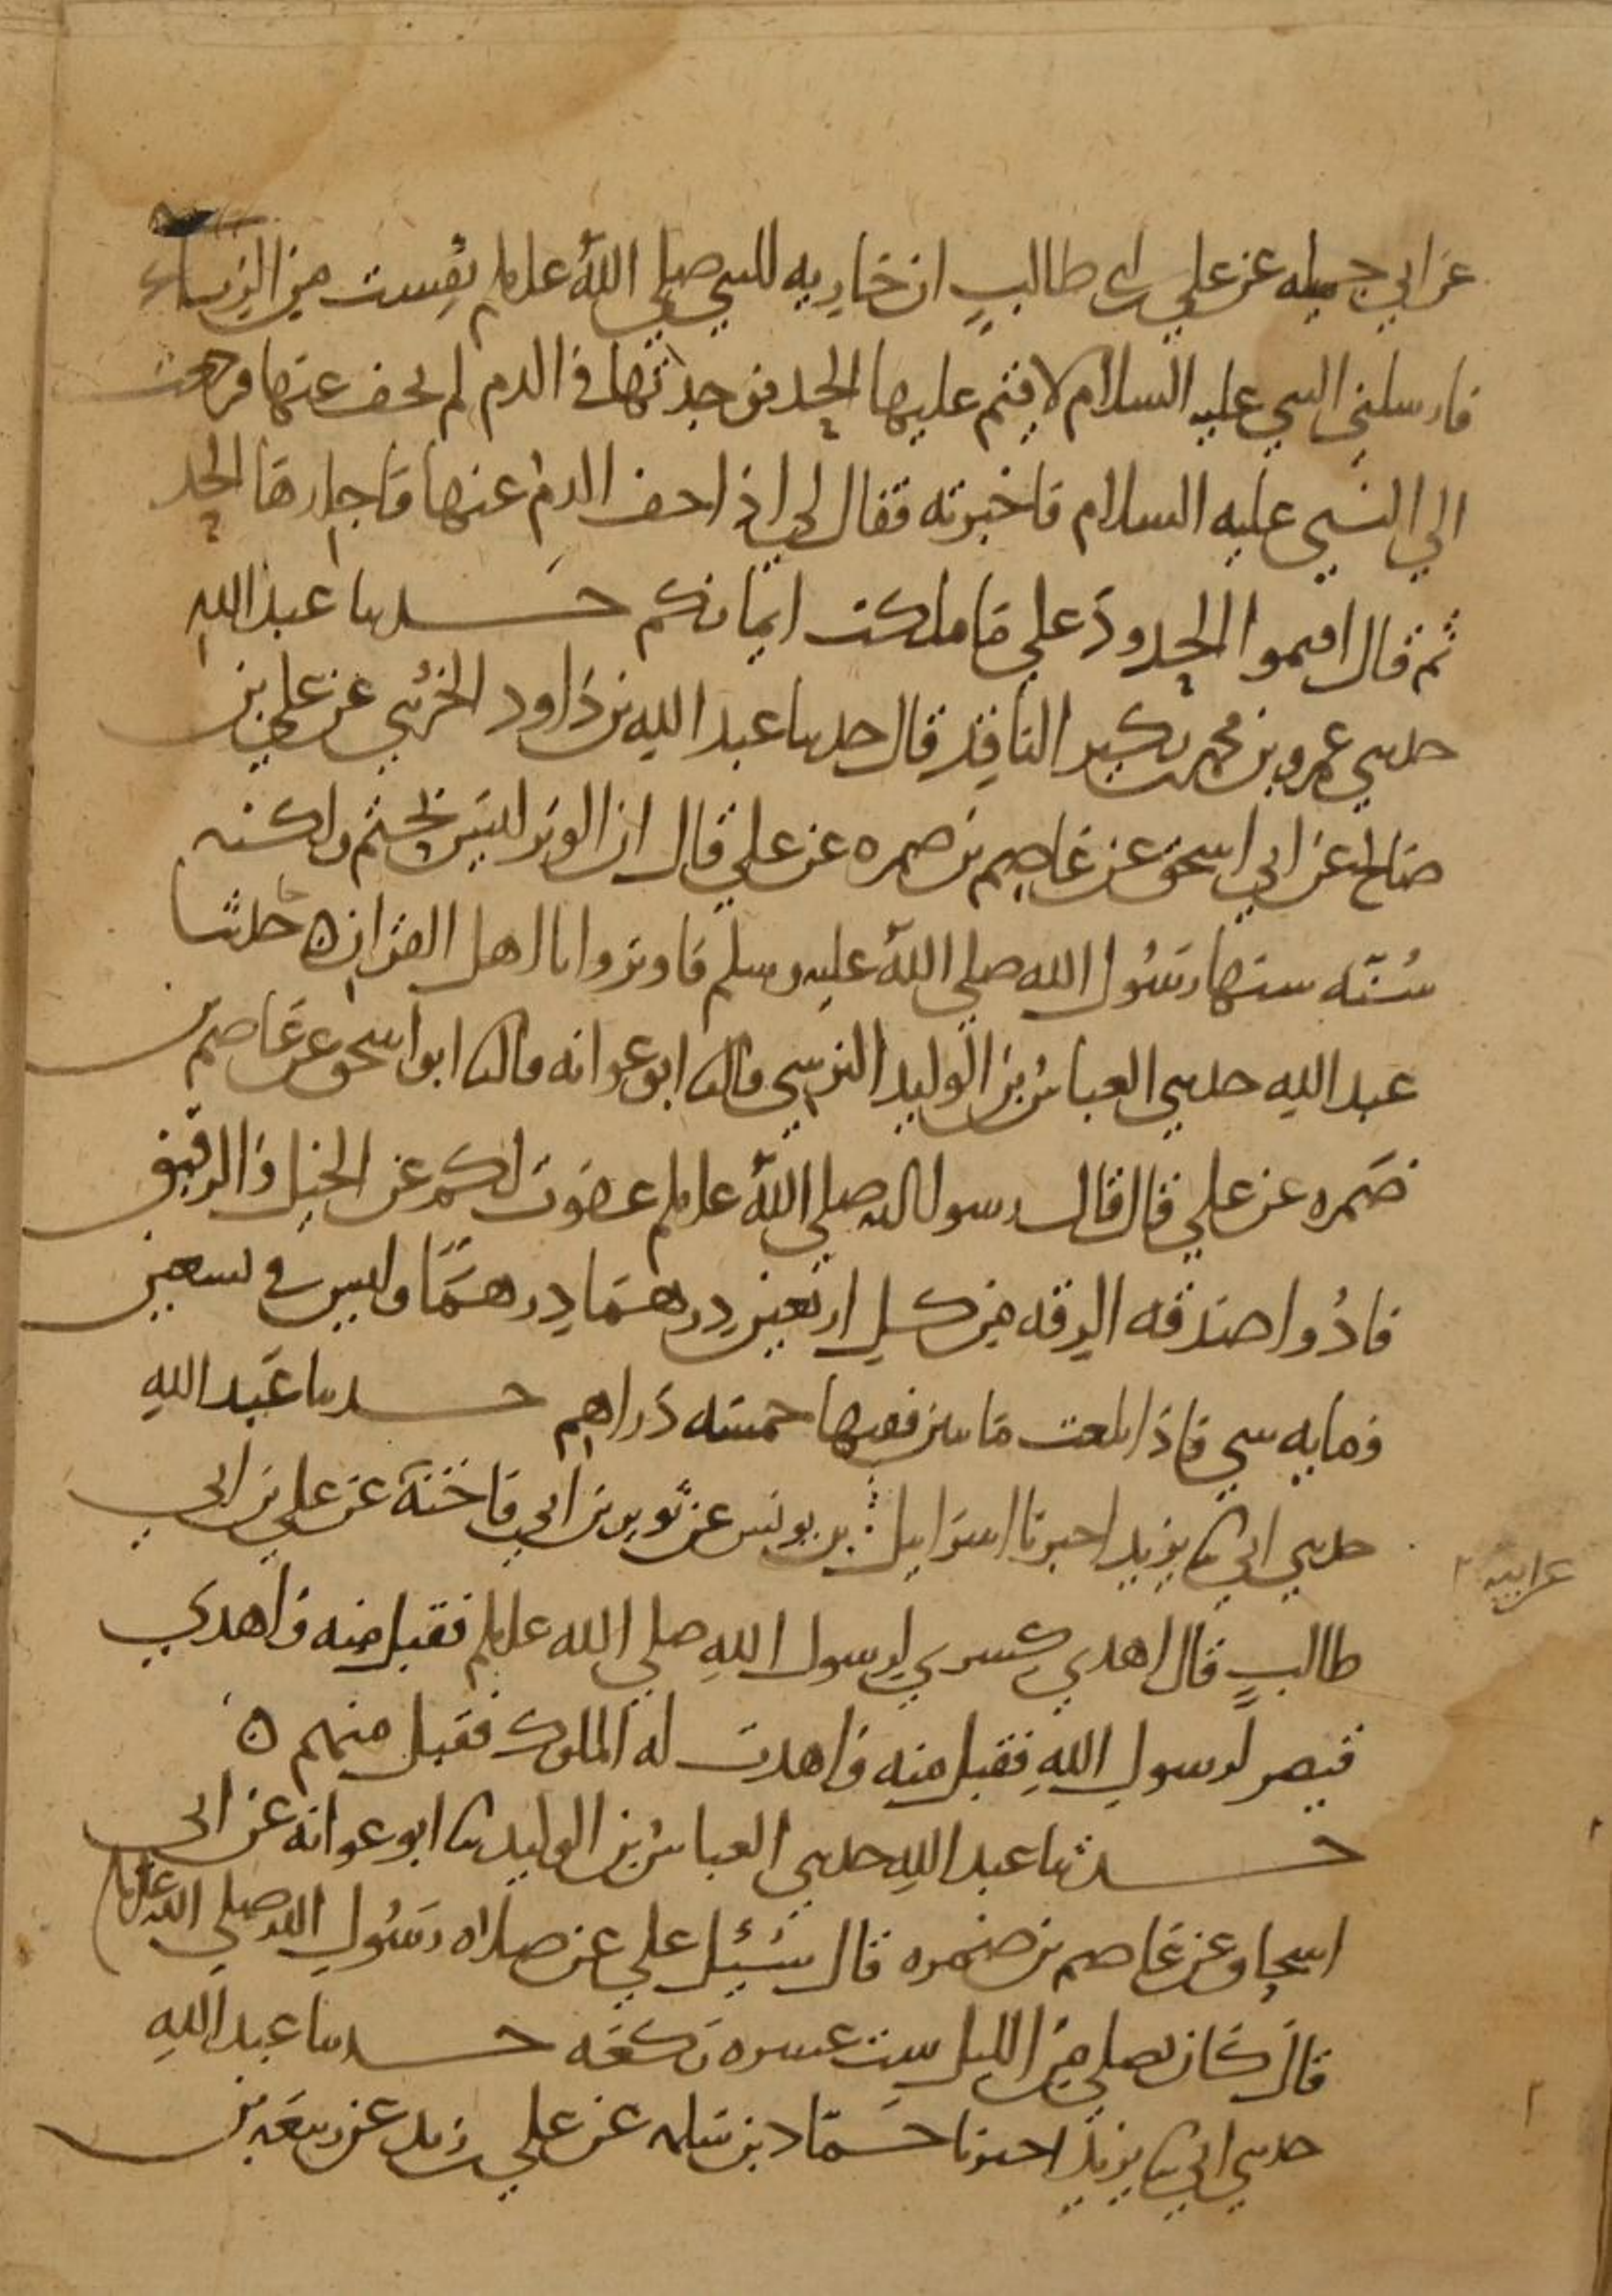 عن ابي جميله عن علي بن ابي طالب ان جاريه للنبي صلى الله عليه وسلم نفست من الزنا
فارسلني النبي عليه السلام لاقيم عليها الحد فوجدتها في الدم لم يجف عنها فرجعت
الي النبي عليه السلام فاخبرته فقال لي اذا جف الدم عنها فاجلدها الحد
ثم قال اقيموا الحدود علي ما ملكت ايمانكم حدثنا عبد الله
حدثني عمرو بن محمد بن بكير الناقد قال حدثنا عبد الله بن داود الخريبي عن علي بن
صالح عن ابي اسحق عن عاصم بن ضمره عن علي قال ان الوتر ليس بحتم ولكنه
سُنّه سنها رسُول الله صلي الله عليه وسلم فاوتروا يا اهل القران ه حدثنا
عبد الله حدثني العباس بن الوليد النرسي قال ثنا ابو عوانه قال ثنا ابو اسحق عن عاصم بن
ضمره عن علي قال قال رسول الله صلي الله عليه وسلم عفوت لكم عن الخيل والرقيق
فادُوا صدقه الرقه من كل اربعين درهما درهما وليس في تسعين
ومايه شي فاذا بلغت مايتين ففيها خمسه دراهم حدثنا عبد الله
حدثني ابي ثنا يزيد اخبرنا اسرايل بن يونس عن ثوير بن ابي فاخته عن علي بن ابي
طالب قال اهدي كسري لرسول الله صلي الله عليه وسلم فقبل منه واهدي
قيصر لرسول الله فقبل منه واهدت له الملوك فقبل منهم ه
حدثنا عبد الله حدثني العباس بن الوليد ثنا ابو عوانه عن ابي
اسحاق عن عاصم بن ضمره قال سُئِل علي عن صلاه رسُول الله صلي الله عليه وسلم
قال كان يصلي من الليل ست عشره ركعه حدثنا عبد الله
حدثني ابي ثنا يزيد اخبرنا حمّاد بن سلمه عن علي بن زيد عن ربيعه بن